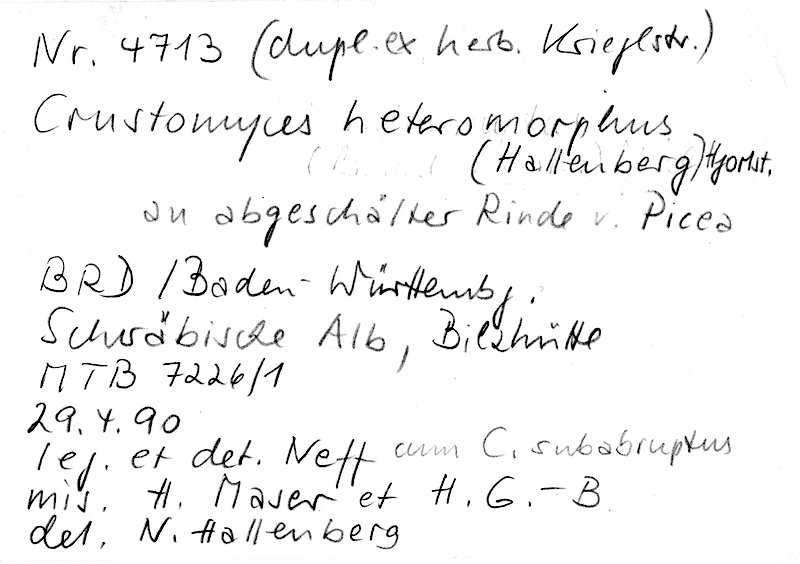 Nr. 4713 (dupl. ex herb. Krieglstr.)
Crustomyces heteromorphus
(Hallenberg) Hjortst.
an abgeschälter Rinde v. Picea
BRD / Baden-Württembg.
Schwäbische Alb, Bilzhütte
MTB 7226/1
29.4.90
leg. et det. Neff cum C. subabruptus
mis. H. Maser et H. G.-B
det. N. Hallenberg